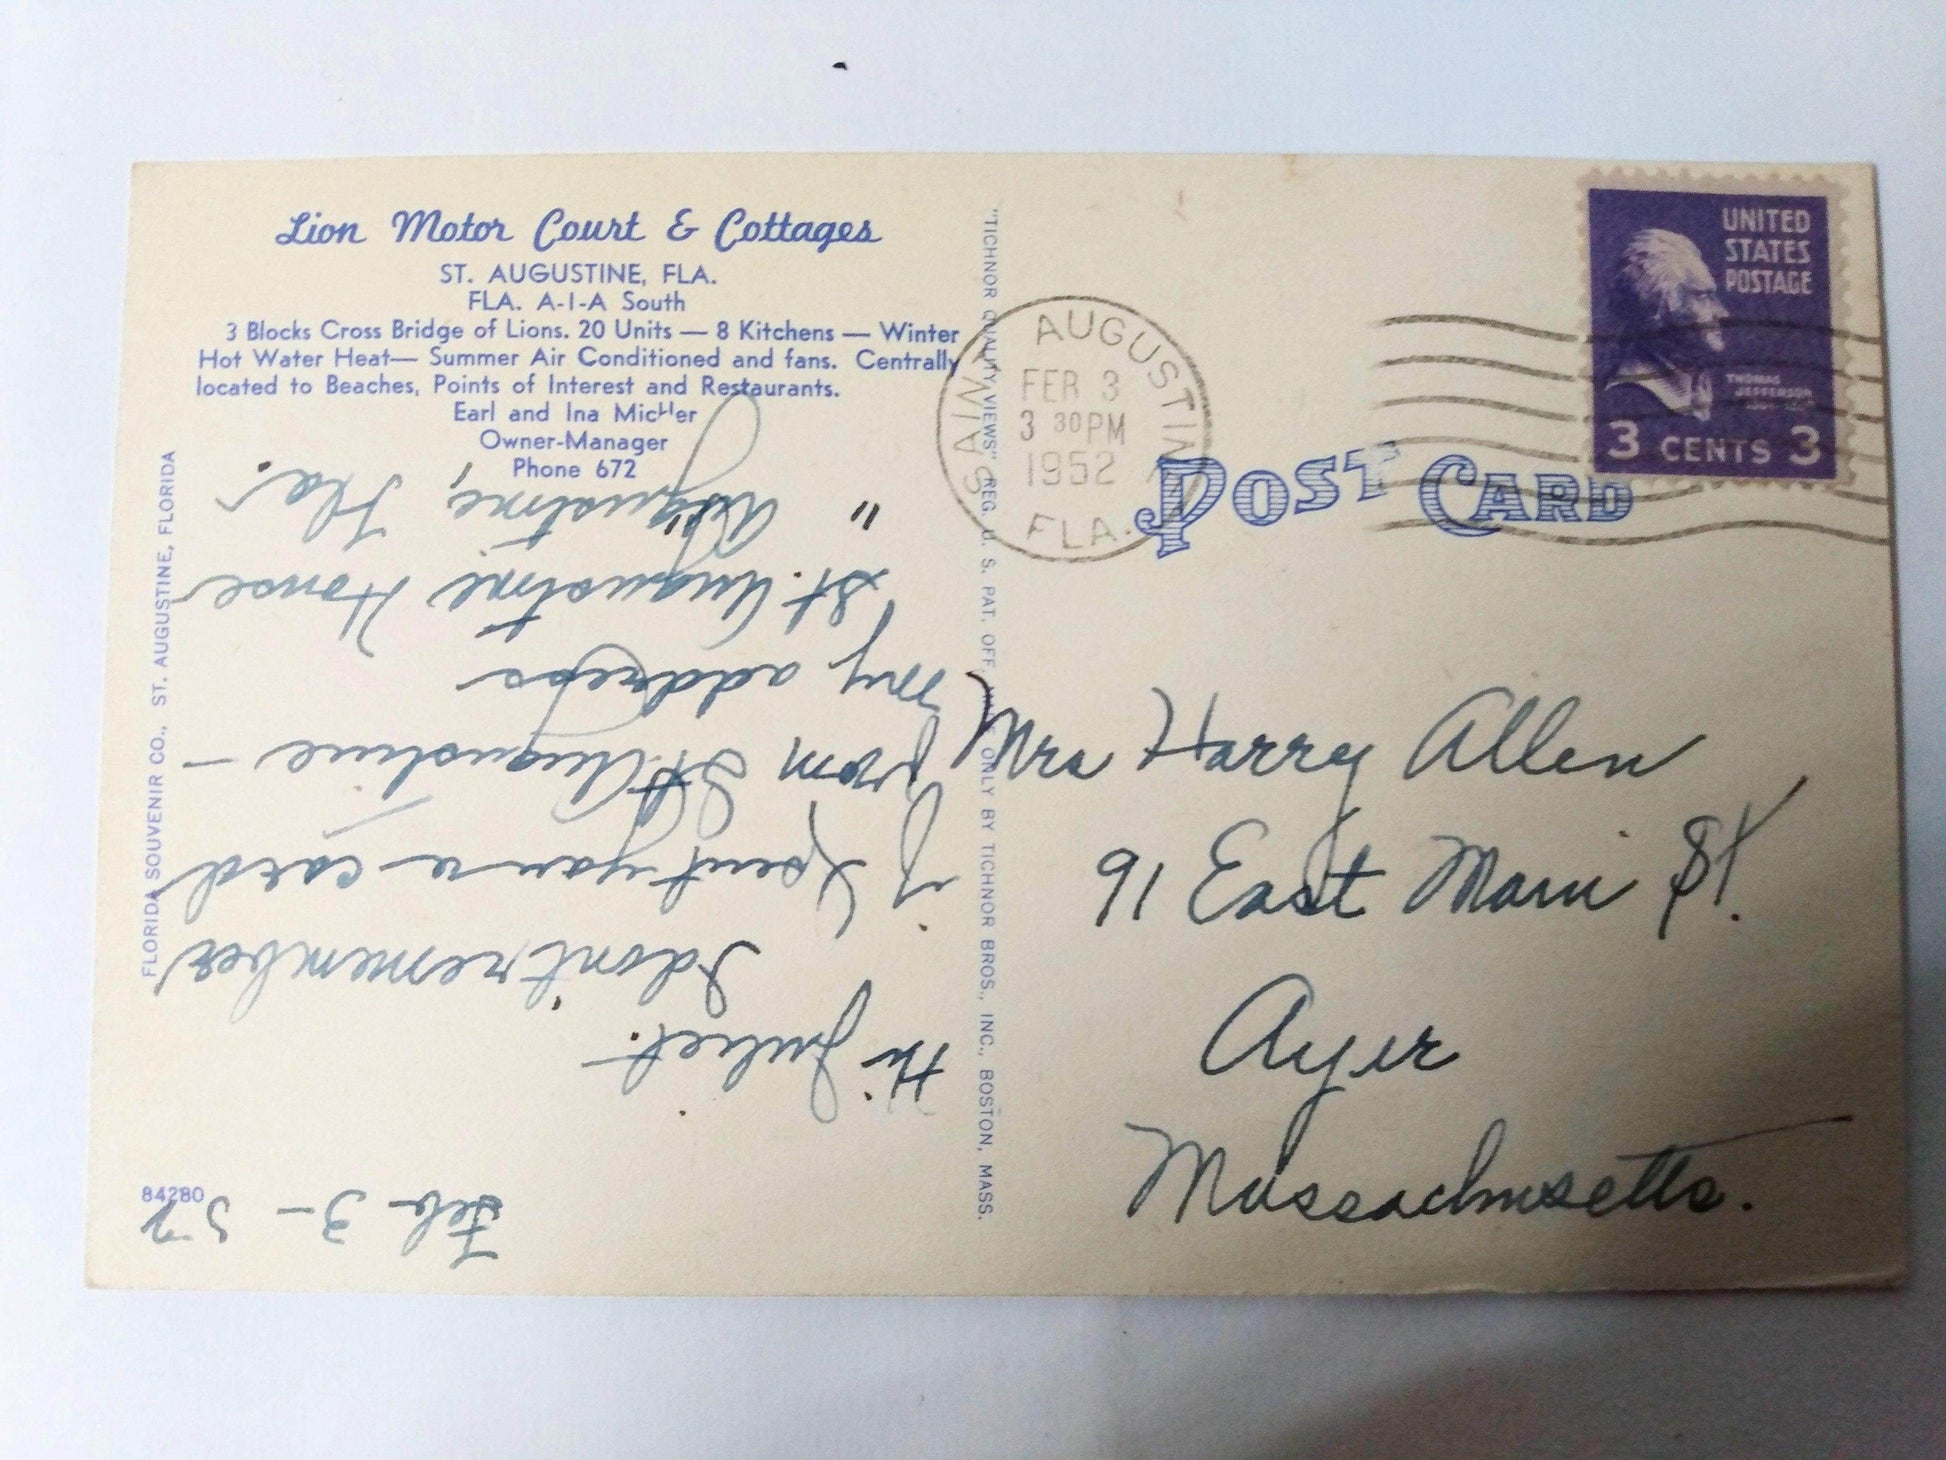 Lion Motor Court & Cottages
ST. AUGUSTINE, FLA.
FLA. A-1-A South
3 Blocks Cross Bridge of Lions. 20 Units — 8 Kitchens — Winter
Hot Water Heat— Summer Air Conditioned and fans. Centrally
located to Beaches, Points of Interest and Restaurants.
Earl and Ina Mickler
Owner-Manager
Phone 672
FLORIDA SOUVENIR CO., ST. AUGUSTINE, FLORIDA
84280
"TICHNOR QUALITY VIEWS" REG. U. S. PAT. OFF. MADE ONLY BY TICHNOR BROS., INC., BOSTON, MASS.
Feb 3 - 52
Hi Juliet. -
I don't remember
if I sent you a card
from St. Augustine -
My address
St. Augustine House
" Augustine, Fla.
SAINT AUGUSTINE
FEB 3
3 30 PM
1952
FLA.
UNITED
STATES
POSTAGE
THOMAS
JEFFERSON
3 CENTS 3
POST CARD
Mrs Harry Allen
91 East Main St.
Ayer
Massachusetts.